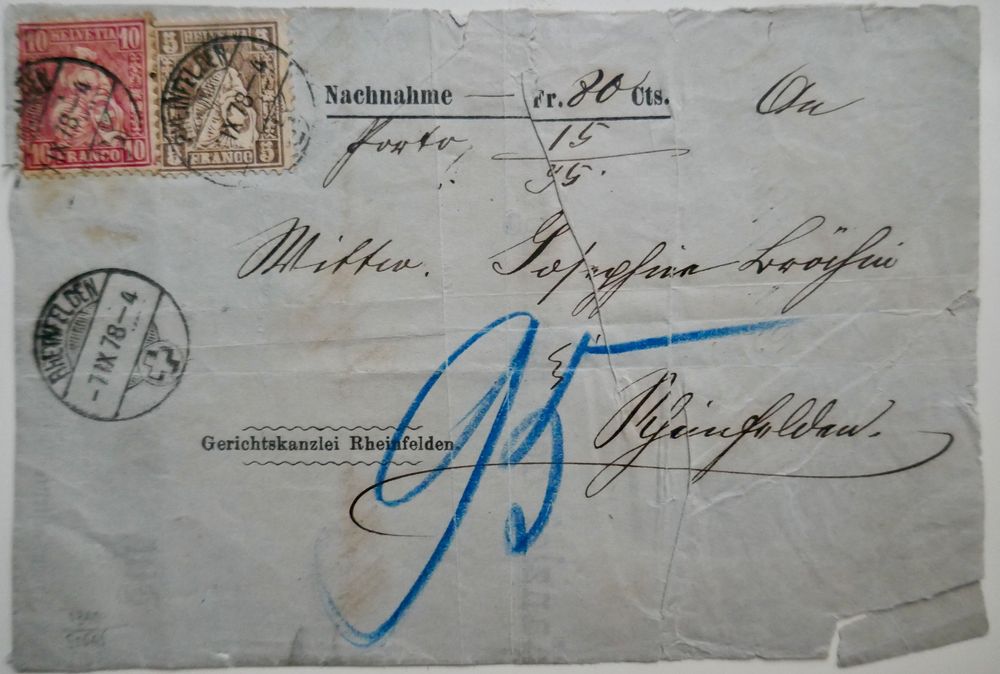 10 HELVETIA 10
10 FRANCO 10
5 HELVETIA 5
5 FRANCO 5
RHEINFELDEN
IX 78-4
RHEINFELDEN
IX 78-4
Nachnahme — Fr. 80 Cts.
An
Porto, 15
95.
Wittw. Josephine Bröchin
in
Rheinfelden.
RHEINFELDEN
-7 IX 78-4
Gerichtskanzlei Rheinfelden.
95